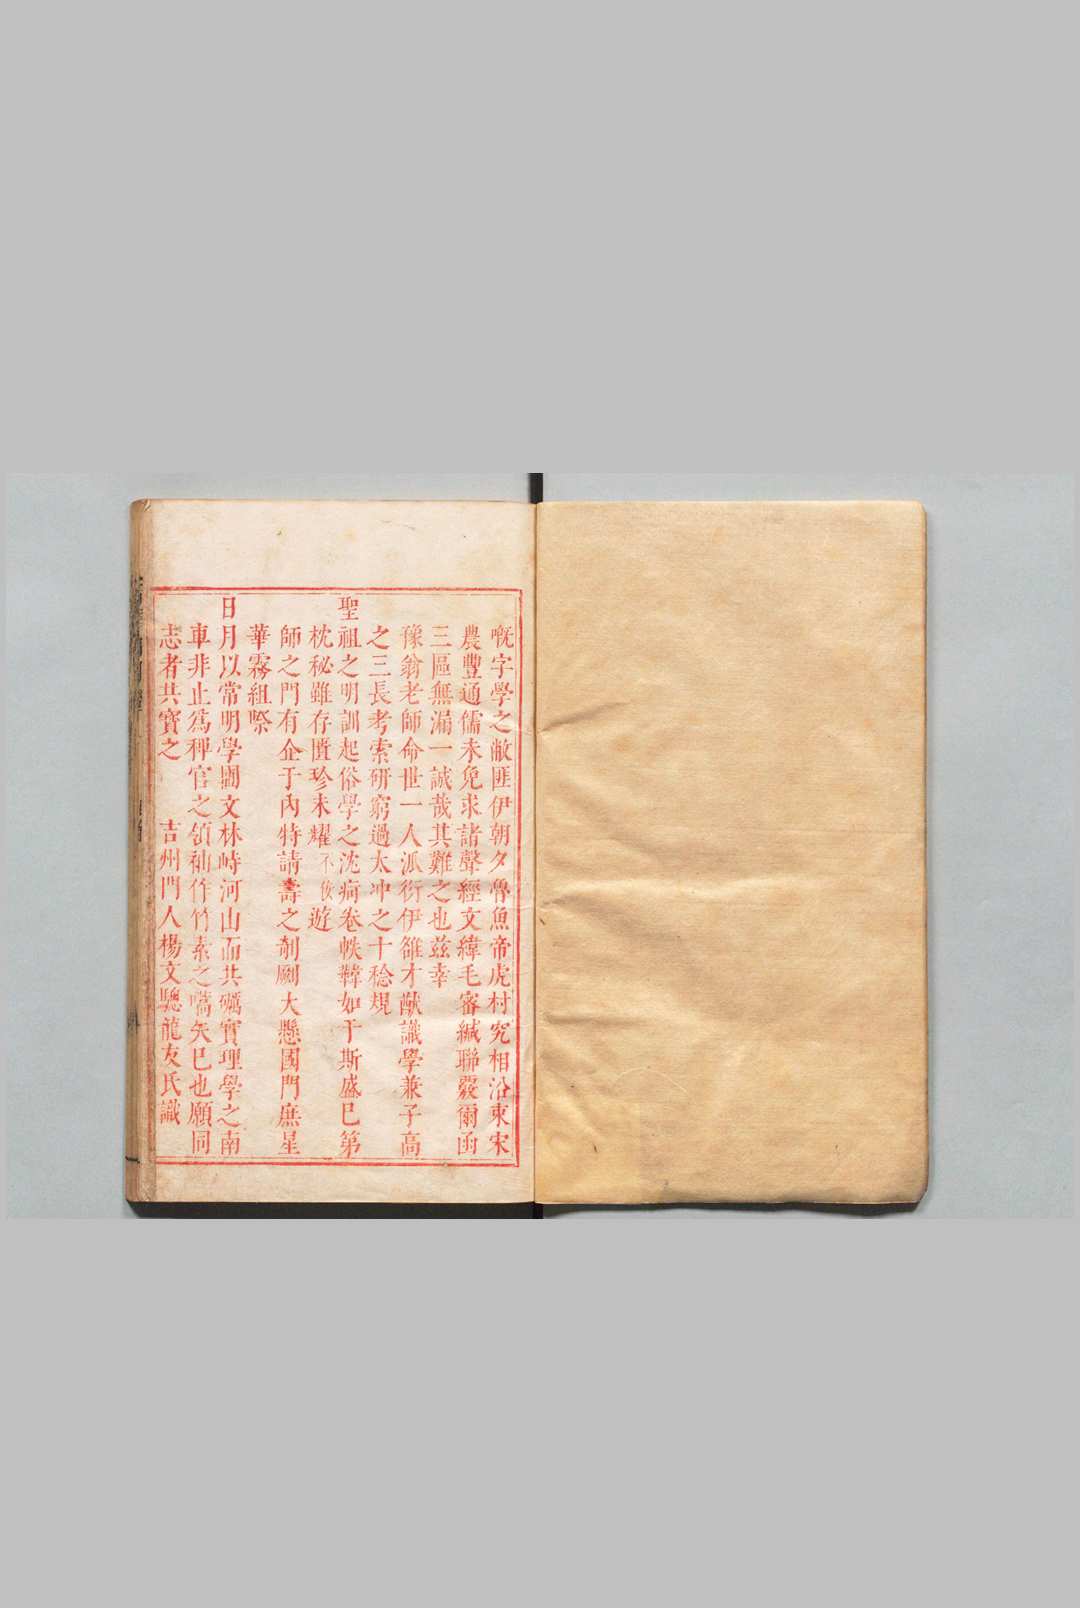 嘅字學之敝匪伊朝夕魯魚帝虎村究相沿東宋
農豐通儒未免求諸聲經文緯毛審緘聯叕爾函
三區無漏一誠哉其難之也茲幸
豫翁老師命世一人派衍伊雒才猷識學兼子高
之三長考索研窮過太冲之十稔規
聖祖之明訓起俗學之沈痾卷帙韡如于斯盛巳第
枕秘雖存匱珍未耀不佞遊
師之門有企于內特請壽之剞劂大懸國門庶星
華霧組際
日月以常明學圃文林峙河山而共礪實理學之南
車非止爲稗官之領袖作竹素之嚆矢巳也願同
志者共寶之 吉州門人楊文驄龍友氏識